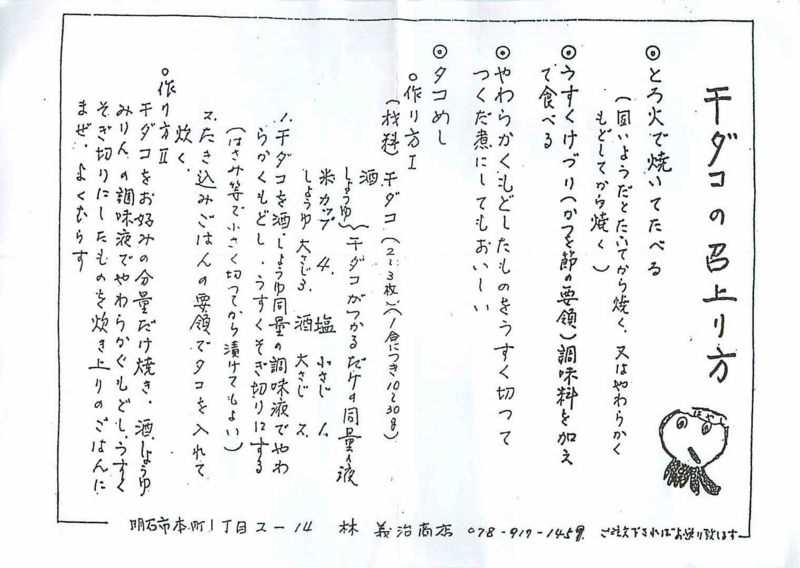 干ダコの召上り方
はやし
◎とろ火で焼いてたべる
(固いようだとたたいてから焼く、又はやわらかく
もどしてから焼く)
◎うすくけづり(かつを節の要領)調味料を加え
て食べる
◎やわらかくもどしたものをうすく切つて
つくだ煮にしてもおいしい
◎タコめし
○作り方I
(材料)干ダコ(2~3枚)(1合につき10~30g)
酒
しょうゆ
干ダコがつかるだけの同量の液
米カップ 4. 塩 小さじ 1.
しょうゆ 大さじ3. 酒 大さじ 2.
1.干ダコを酒.しょうゆ同量の調味液でやわ
らかくもどし.うすくそぎ切りにする
(はさみ等で小さく切つてから漬けてもよい)
2.たき込みごはんの要領でタコを入れて
炊く.
○作り方II
干ダコをお好みの分量だけ焼き.酒.しょうゆ
みりんの調味液でやわらかくもどし.うすく
そぎ切りにしたものを炊き上りのごはんに
まぜ.よくむらす
明石市本町1丁目2-14 林 義治商店 078-917-1459. ご注文下さればお送り致します